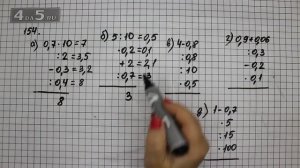 4AS.RU
154.
а) 0,7·10=7
:2=3,5
-0,3=3,2
:0,4=8
8
б) 5:10=0,5
·0,2=0,1
+2=2,1
:0,7=3
3
в) 4-0,8
:0,8
:10
·0,5
г) 0,9+0,06
:0,3
-0,2
·0,1
д) 1-0,7
·5
:15
·100